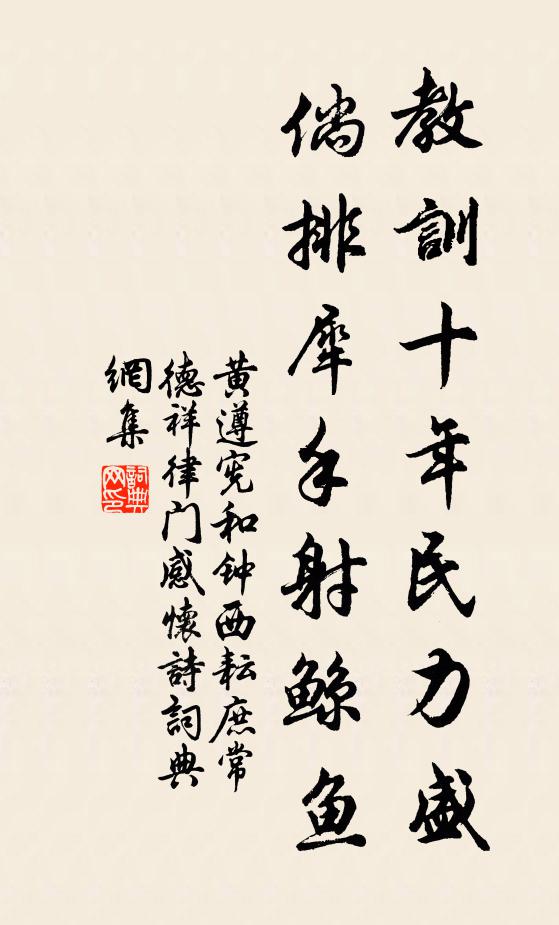 教訓十年民力盛
倘排犀手射鲸鱼
黄遵宪和钟西耘庶常
德祥律门感懷詩詞典
網集
詞典网印